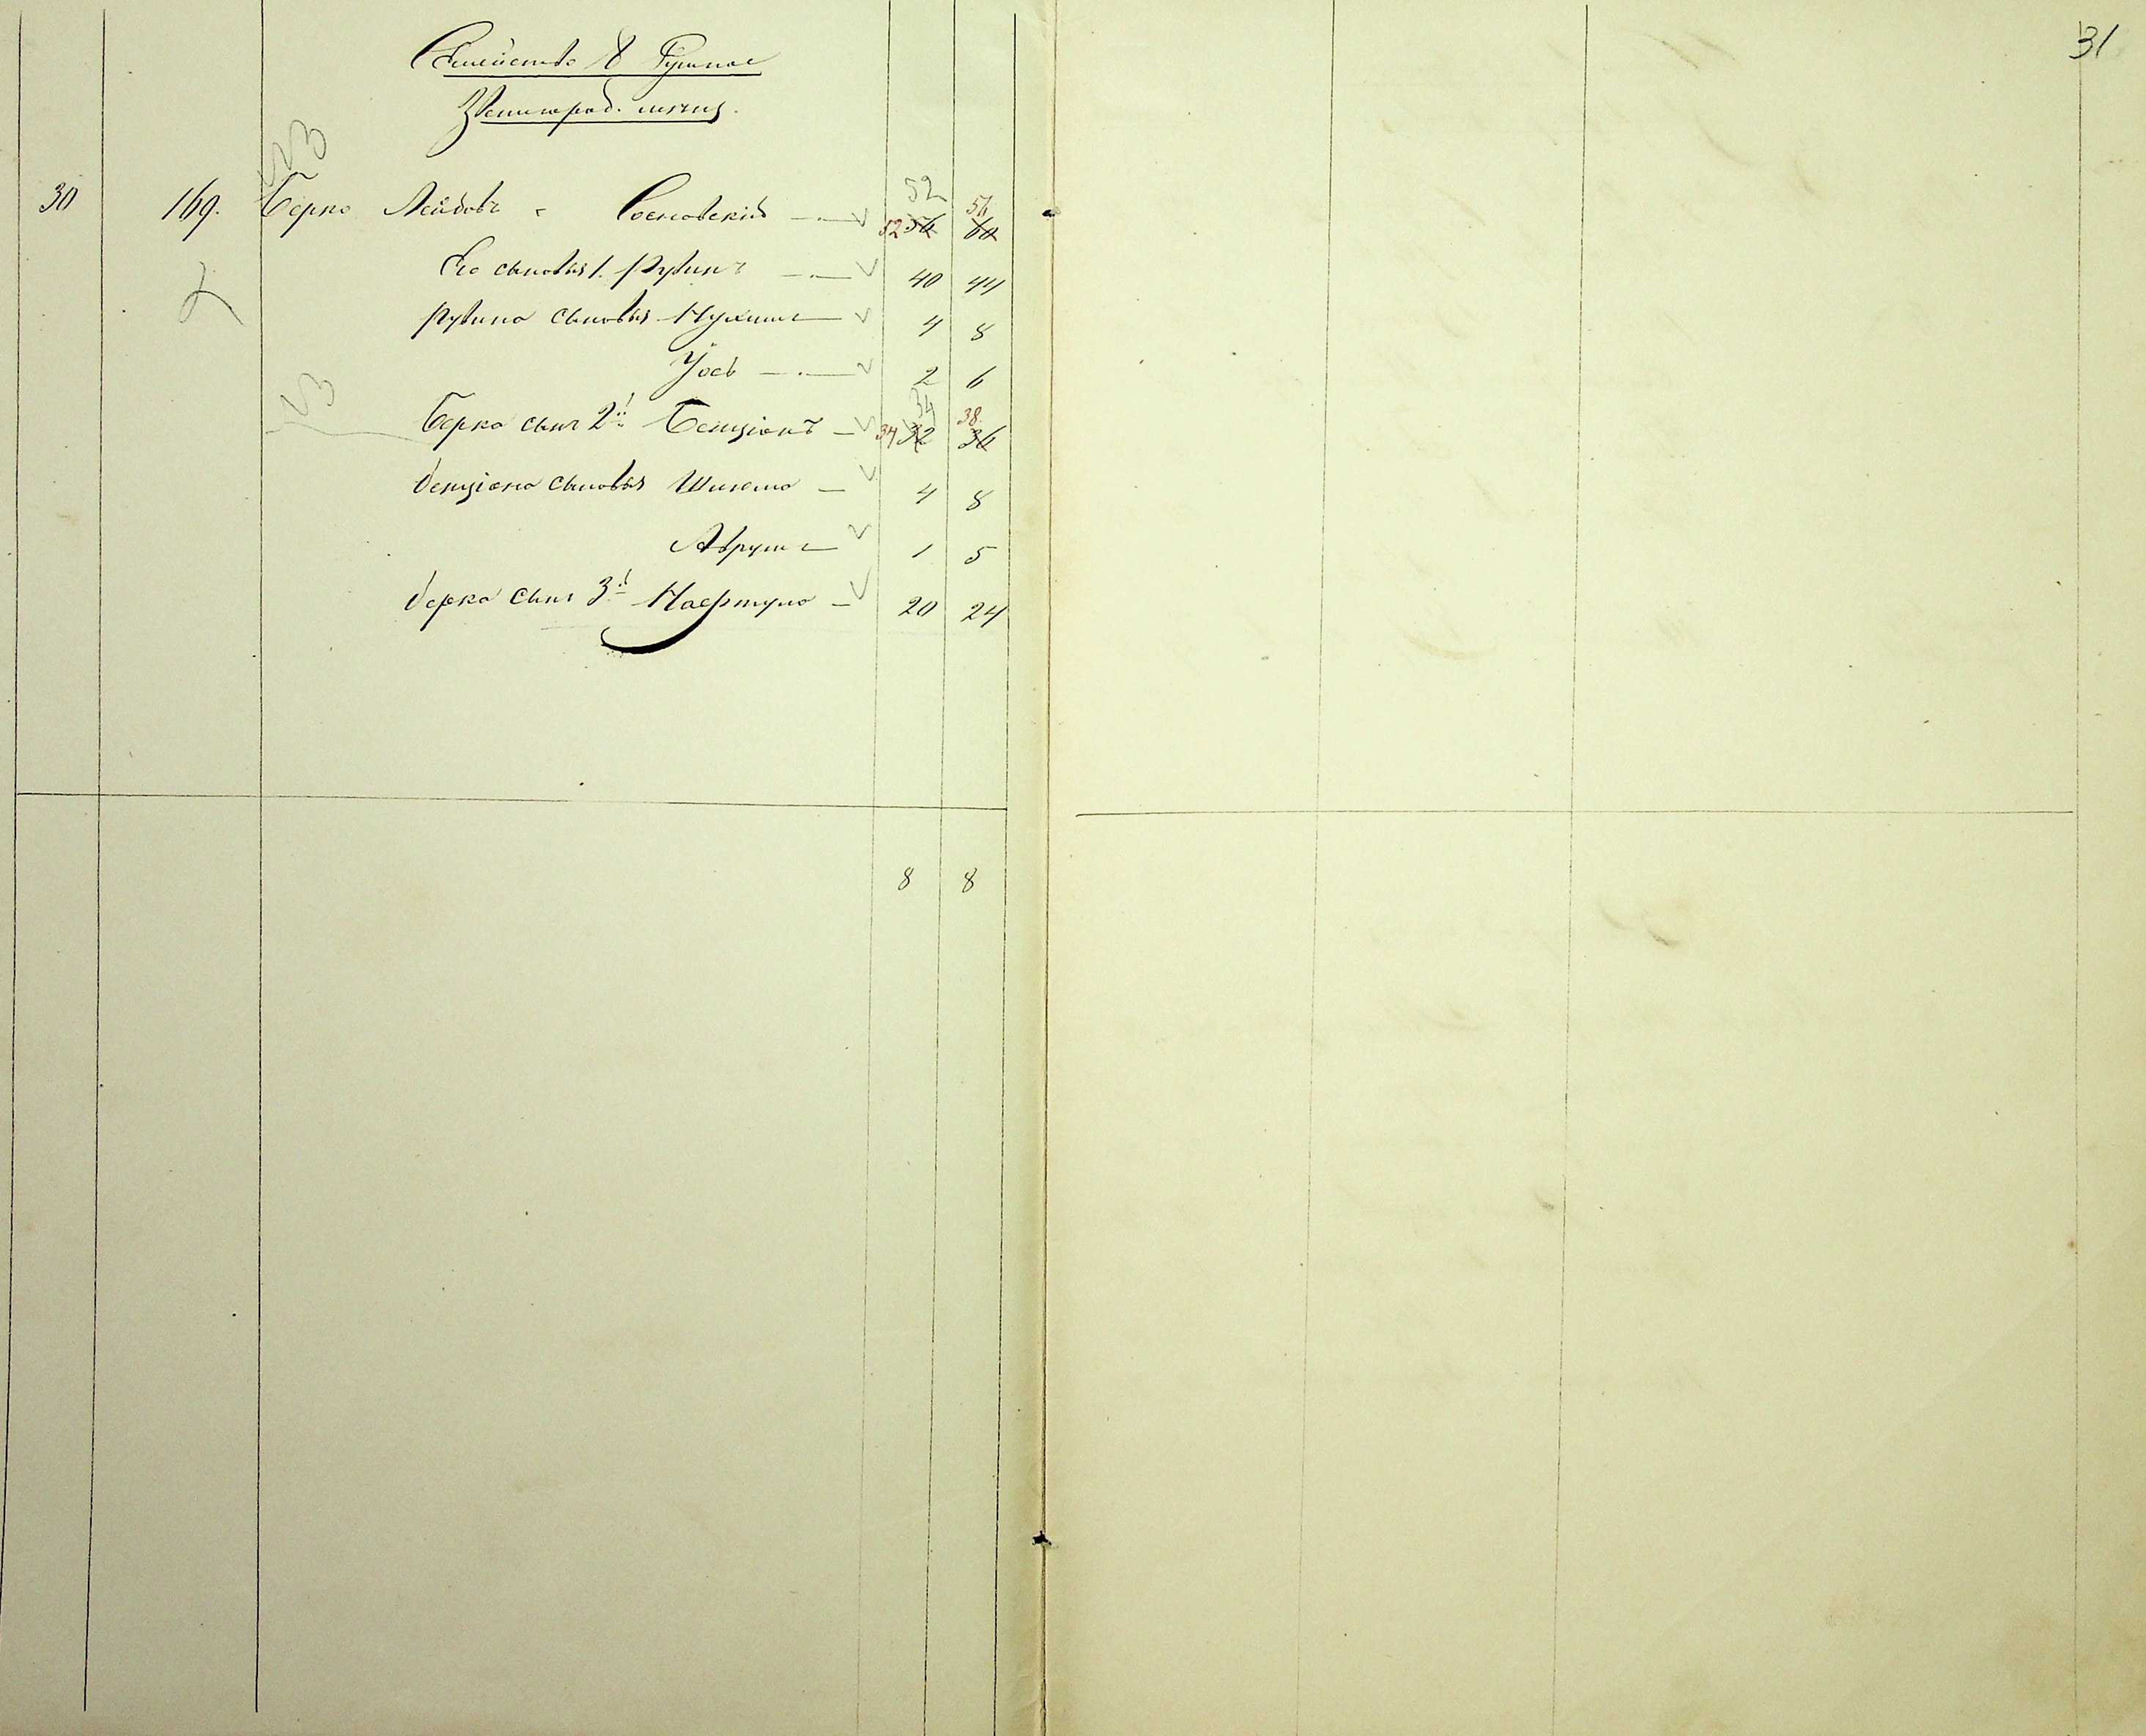 31
Семейство 8 Душное
Звенигород. мѣщ.
30 169. Берко Лейбовъ Сосновскій 52 52 56 56 60
Его сыновья 1. Рувинъ 40 44
Рувина сыновья Нухимъ 4 8
Іось 2 6
Берка сынъ 2й Бенціонъ 34 34 32 38 36
Бенціона сыновья Шикема 4 8
Аврумъ 1 5
Берка сынъ 3й Нафтула 20 24
8 8